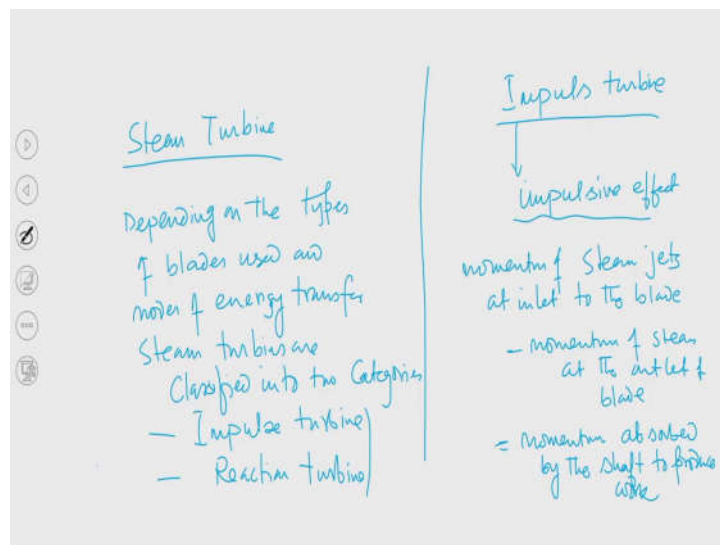 Steam Turbine
Depending on the types
of blades used and
modes of energy transfer
Steam turbines are
Classified into two Categories
— Impulse turbine
— Reaction turbine
Impuls turbine
impulsive effect
momentum of Steam jets
at inlet to the blade
— momentum of steam
at the outlet of
blade
= momentum absorbed
by the shaft to produce
work